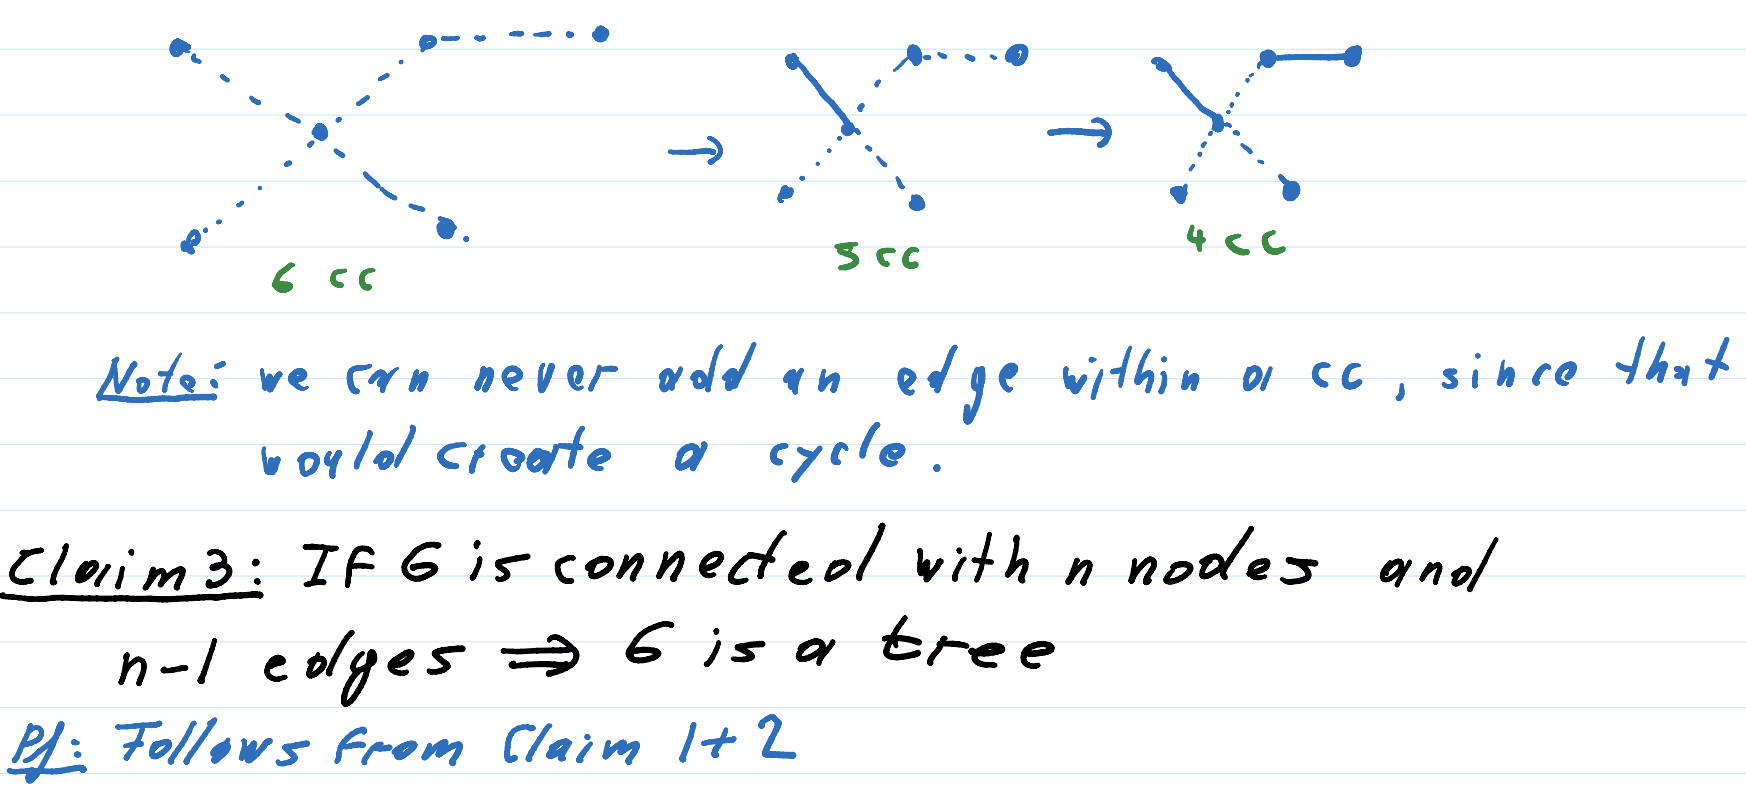 6 cc
5 cc
4 cc
Note: we can never add an edge within a cc, since that
would create a cycle.
Claim 3: If G is connected with n nodes and
n-1 edges ⇒ G is a tree
Pf: Follows from Claim 1+2